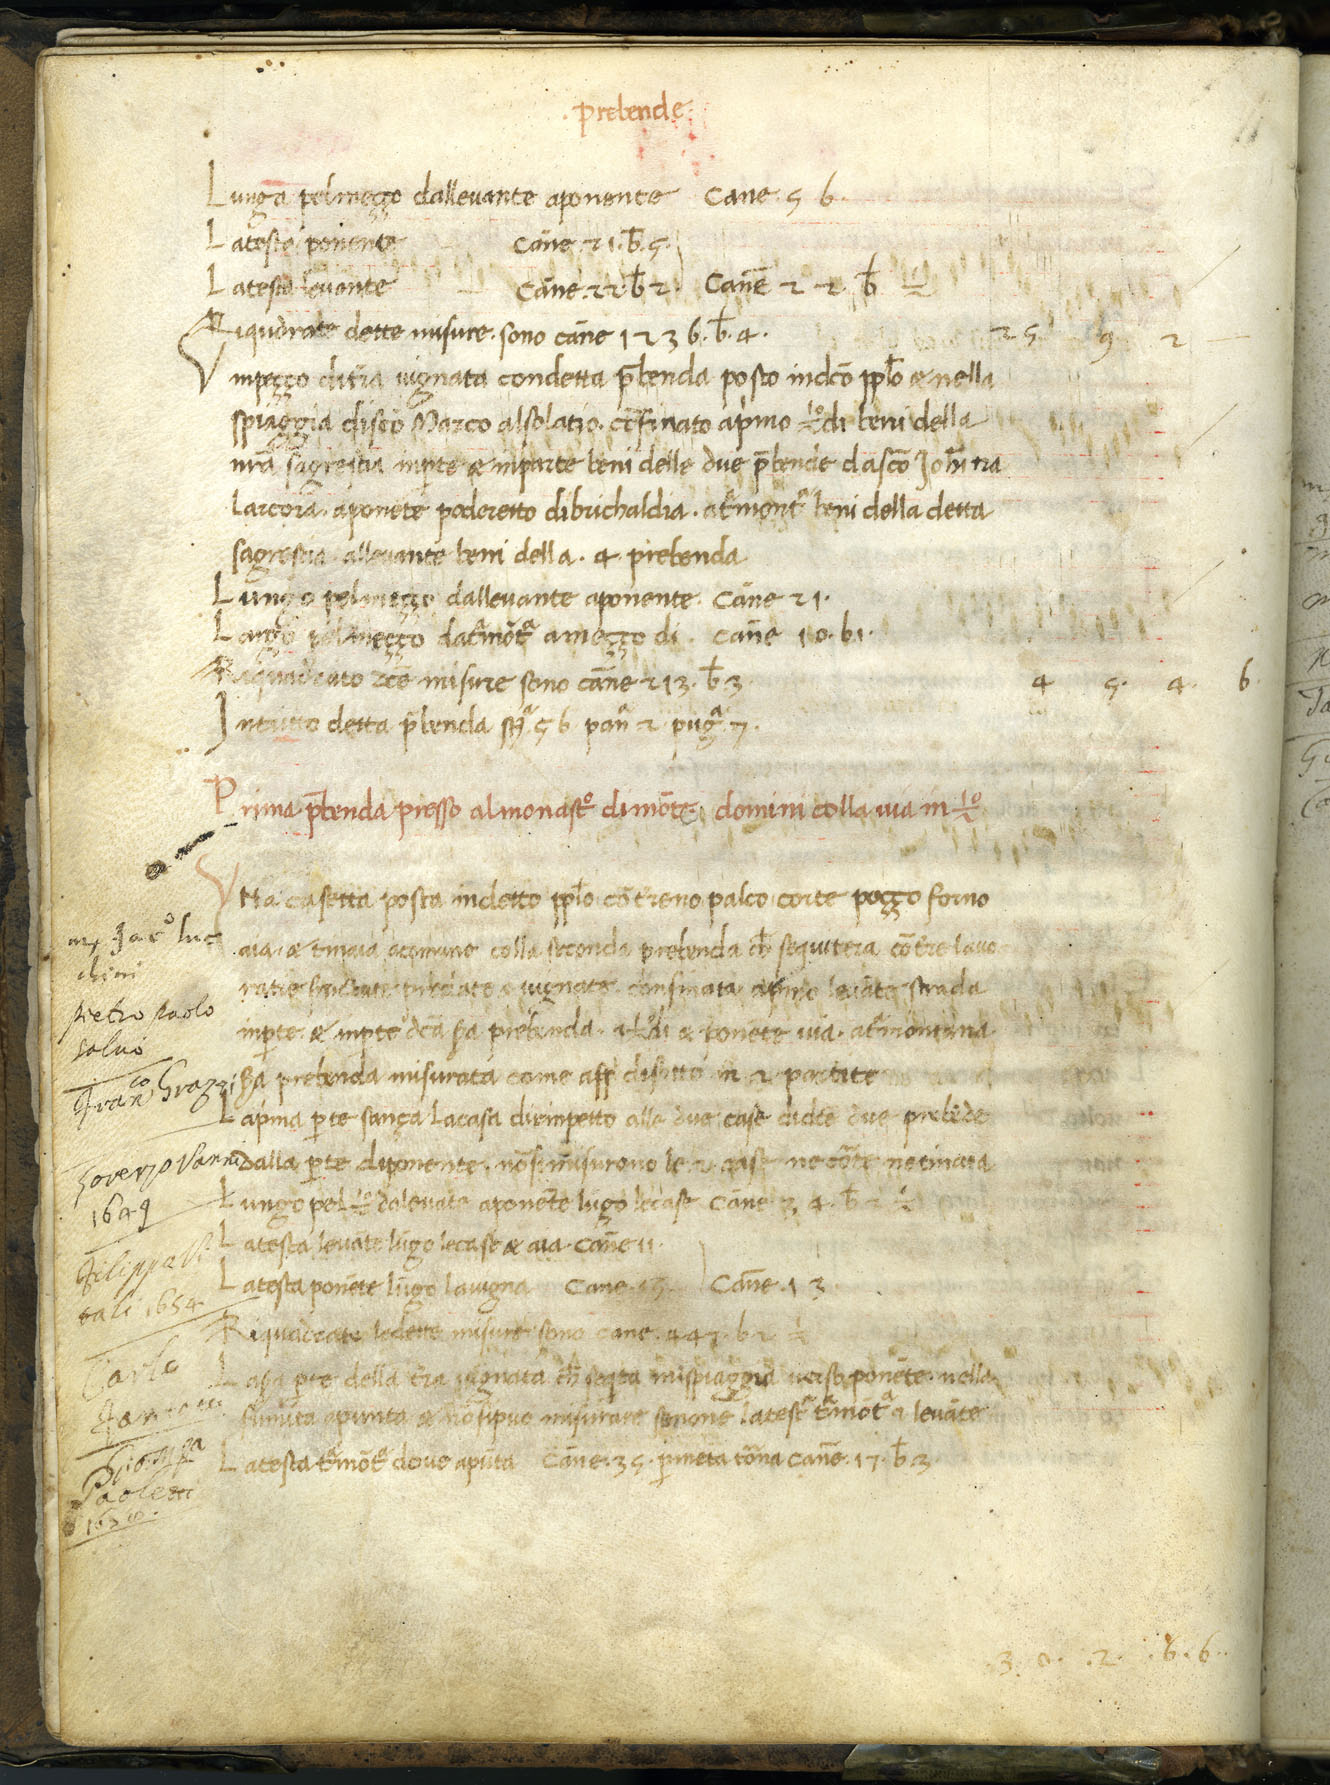 . prebende .
11
Lunga pelmeçço dallevante aponente Cane . 5 6 .
Latesta ponente Cāne . 21 . b̄ . 5 .
Latesta levante Cāne . 22 . b̄ 2 . Canē 2 2 . b̄ 1/2
Riqudrate dette misure . sono cāne 1236 . b̄ . 4 . 25 9 2 —
Vnpeçço dit̄ra vignata condetta p̄benda posto indcō pplō & nella
spiaggia discō Marco alsolatio . cōfinato ap̄mo 1/2º di beni della
nrā sagrestia inp̄te & inparte beni delle due p̄bende dascō Johīna
larcorā . aponēte poderetto dibrichaldia . at̄mont̄ª beni della detta
sagrestia . allevante beni della . 4 . prebenda
Lungo pelmeçço dallevante aponente . Cāne 21 .
Largo pelmeçço dat̄mōtª ameçço di . canē 10 . b1 .
Riquadrato dcē misure sono cānē 213 . b̄ 3 4 5 . 4 . 6
Intutto detta p̄benda st̄ª 56 panª 2 pugª 7 .
Prima p̄benda presso almonastº dimōte domini colla via in 1/2º
Vna casetta posta indetto pplō cōtreno palco corte poggo forno
aia . & tinaia acomune colla seconda prebenda ch̄ sequitera cōtre lavo
ratie vignate . confinata ap̄mo levāte strada
inp̄te . & inpte dcā 2ª prebenda . a 1/2º di & ponēte via . at̄montana .
2ª prebenda misurata come app̄ disotto in 2 partite
Lap̄ma p̄te sança lacasa dirinpetto alle due case didtē due prebēde
dalla p̄te diponente . nōsimisurono le 2 case ne cōte netinaia
Lungo pel 1/2º dalevāte aponēte lūgo lecase Cāne 34 . b̄ 2 1/2
Latesta levāte lūgo lecase & aia . Canē 11 .
Latesta ponēte lūgo lavigna Cane . 15 . Canē . 13 .
Riquadrate ledette misure sono cane . 447 . b 2 1/2
La 2ª p̄te della t̄ra vignata ch̄ seqta inispiaggia verso ponēte . nella
sūmita apunta & nōsipuo misurare senone latestª t̄mōtª a levāte
Latesta t̄mōtª dove apūta Cāne . 35 . p̄ineta tōna canē . 17 . b̄ 3
. 3 . 0 . . 2 . . 6 . 6 .
m. Jacº luc
chini
pietro paolo
salvi
Franco Grazzi
Lorenzo Vanni
1649
Filippo Vi
tali 1654
Carlo
Giomfa
Paoletti